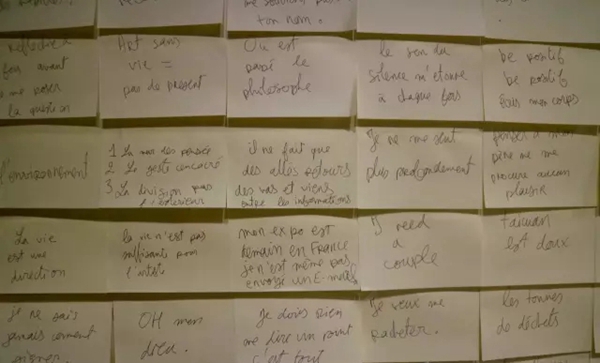 ton nom.
Réfléchi à
fois avant
de me poser
la question
Art sans
vie =
pas de present
Où est
passé le
philosophe
le son du
silence m'étonne
à chaque fois
be positif
be positif
fais mon corps
l'environnement
1 La mort des pensées
2 Le geste consacré
3 La division par
l'extérieur
il ne fait que
des allés retours
des vas et viens
entre les informations
Je ne me sent
plus profondement
penser à mon
père ne me
procure aucun
plaisir
La vie
est une
direction
la vie n'est pas
suffisante pour
l'artiste
mon expo est
demain en France
je n'est même pas
envoyé un E-mail
I need
a
couple
taiwan
est doux
je ne sais
jamais comment
OH mon
dieu.
Je dois rien
me dire un point
c'est tout
Je veux me
racheter.
les tonnes
de déchets